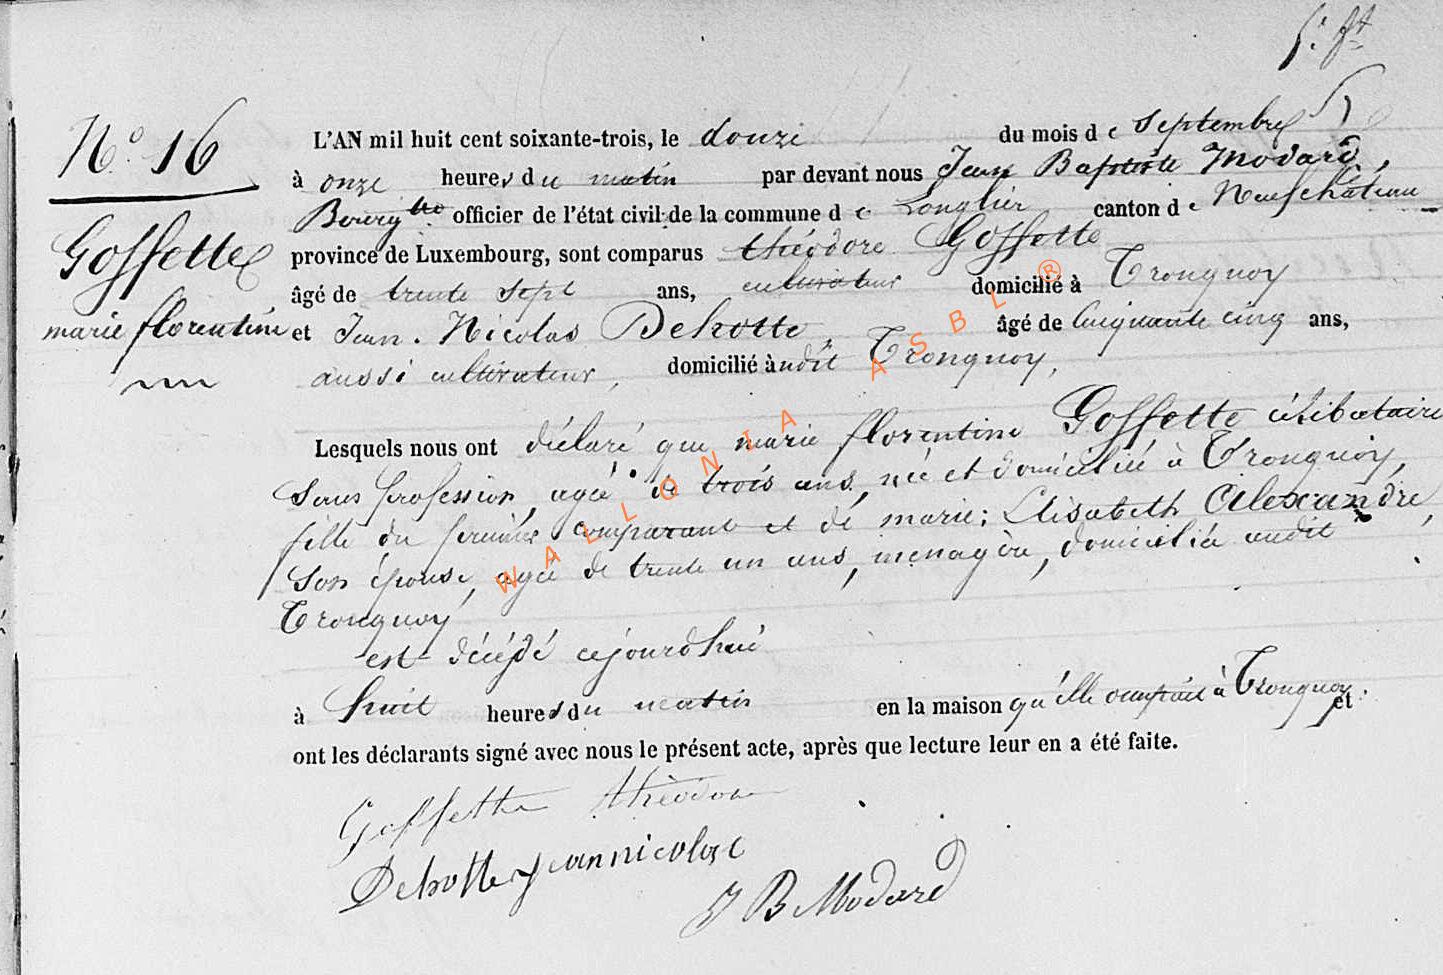 N.° 16
Goffette
marie florentine
L'AN mil huit cent soixante-trois, le douze du mois de Septembre
à onze heures du matin par devant nous Jean Baptiste Modard,
officier de l'état civil de la commune de Longlier canton de Neufchâteau
province de Luxembourg, sont comparus théodore Goffette
âgé de trente sept ans, cultivateur domicilié à Tronquoy
et Jean. Nicolas Dehotte, âgé de Cinquante cinq ans,
aussi cultivateur, domicilié àudit Tronquoy,
Lesquels nous ont déclaré que marie florentine Goffette célibataire
Sans profession, agée de trois ans, née et domiciliée à Tronquoy,
fille du premier Comparant et de marie: Elisabeth Alexandre,
Son épouse, agée de trente un ans, menagère, domiciliée audit
Tronquoy
est décédé cejourdhui
à huit heures du matin en la maison qu'elle occupait à Tronquoy. et
ont les déclarants signé avec nous le présent acte, après que lecture leur en a été faite.
Goffette théodore
Dehotte jean nicolas
J B Modard
WALLONIA ASBL ®